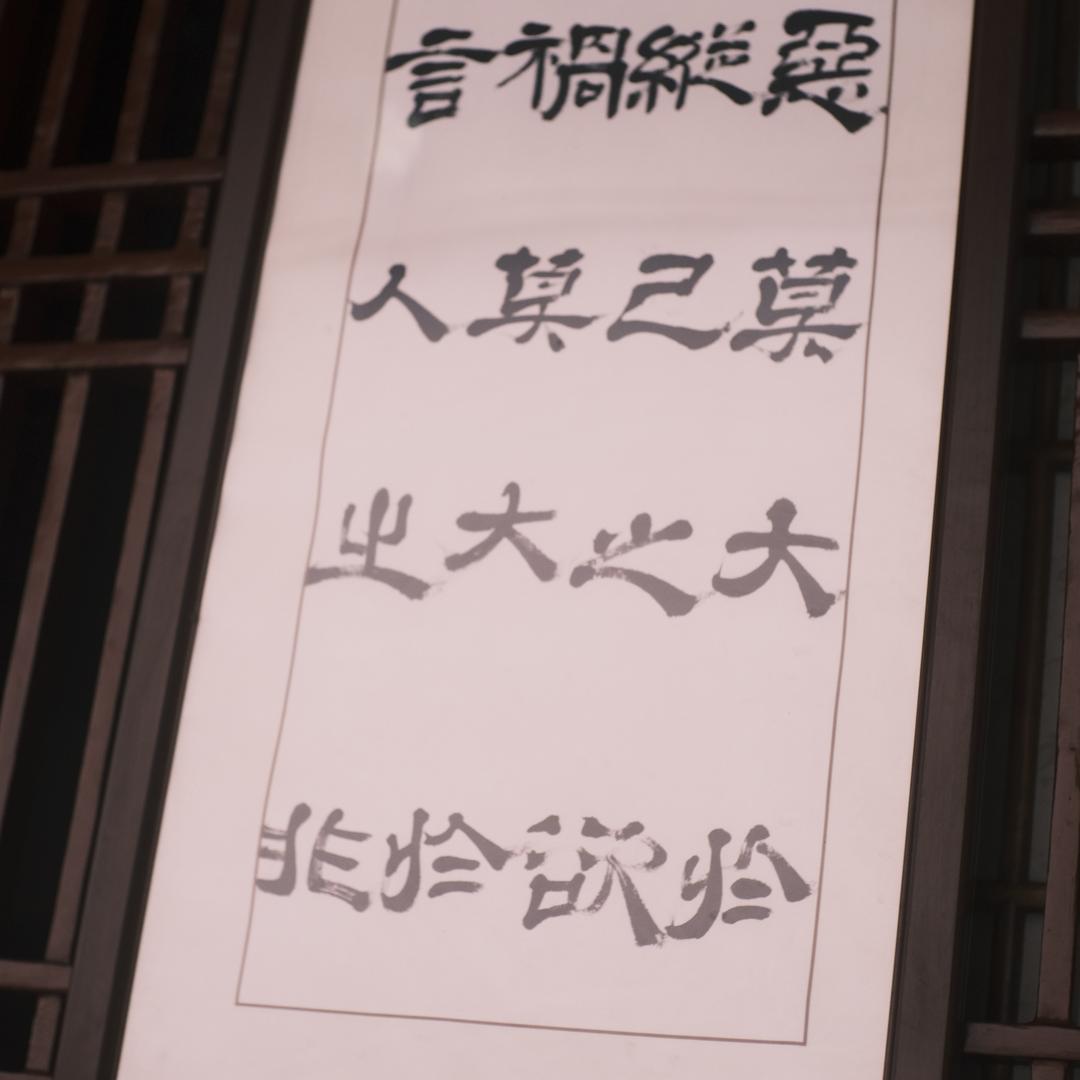 惡莫大於
縱己之欲
禍莫大於
言人之非